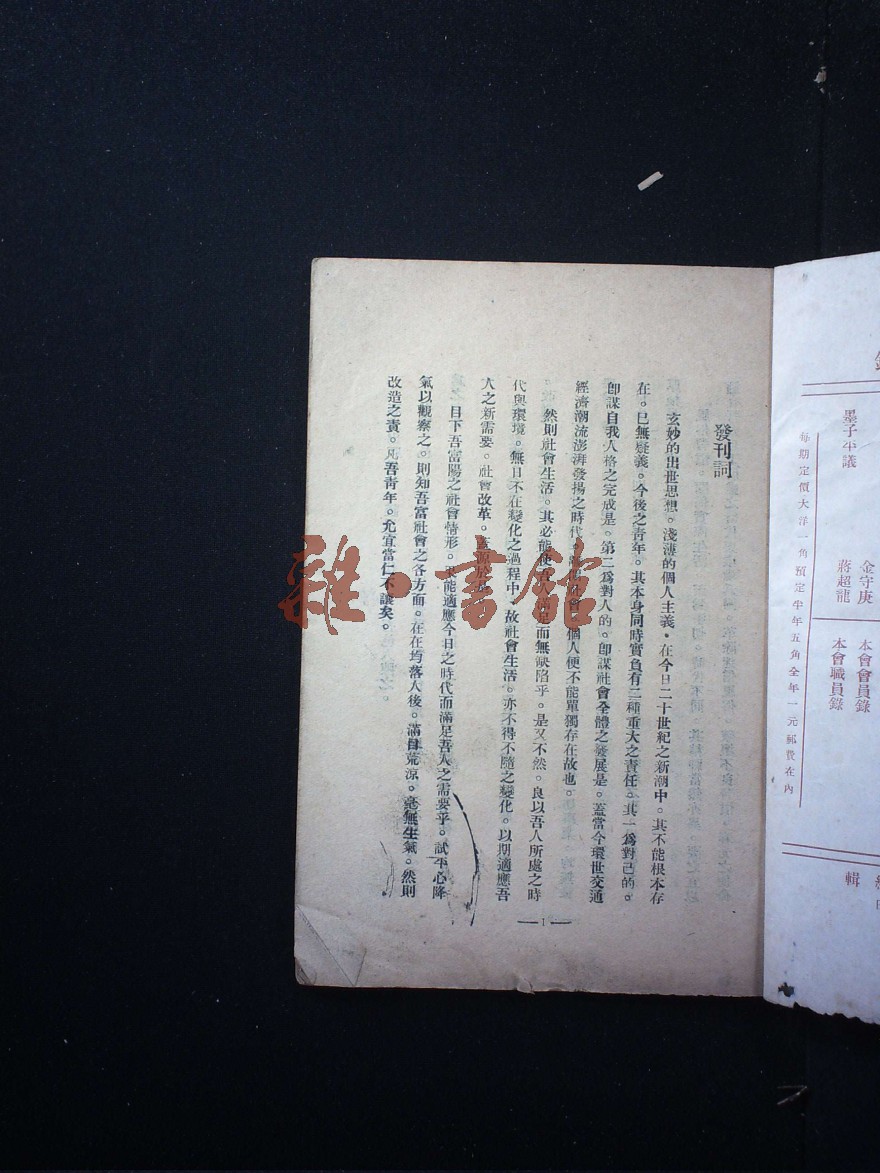 發刊詞
玄妙的出世思想。淺薄的個人主義。在今日二十世紀之新潮中。其不能根本存
在。已無疑義。今後之青年。其本身同時實負有二種重大之責任。其一爲對己的。
卽謀自我人格之完成是。第二爲對人的。卽謀社會全體之發展是。蓋當今環世交通
經濟潮流澎湃發揚之時代 社會。個人便不能單獨存在故也。
然則社會生活。其必能使吾人滿足而無缺陷乎。是又不然。良以吾人所處之時
代與環境。無日不在變化之過程中。故社會生活。亦不得不隨之變化。以期適應吾
人之新需要。社會改革。
目下吾富陽之社會情形。 能適應今日之時代而滿足吾人之需要乎。試平心降
氣以觀察之。則知吾富社會之各方面。在在均落人後。滿目荒涼。毫無生氣。然則
改造之責。凡吾青年。允宜當仁不讓矣。
1
墨子平議
金守庚
蔣超龍
本會會員錄
本會職員錄
每期定價大洋一角預定半年五角全年一元郵費在內
輯
雜·書館